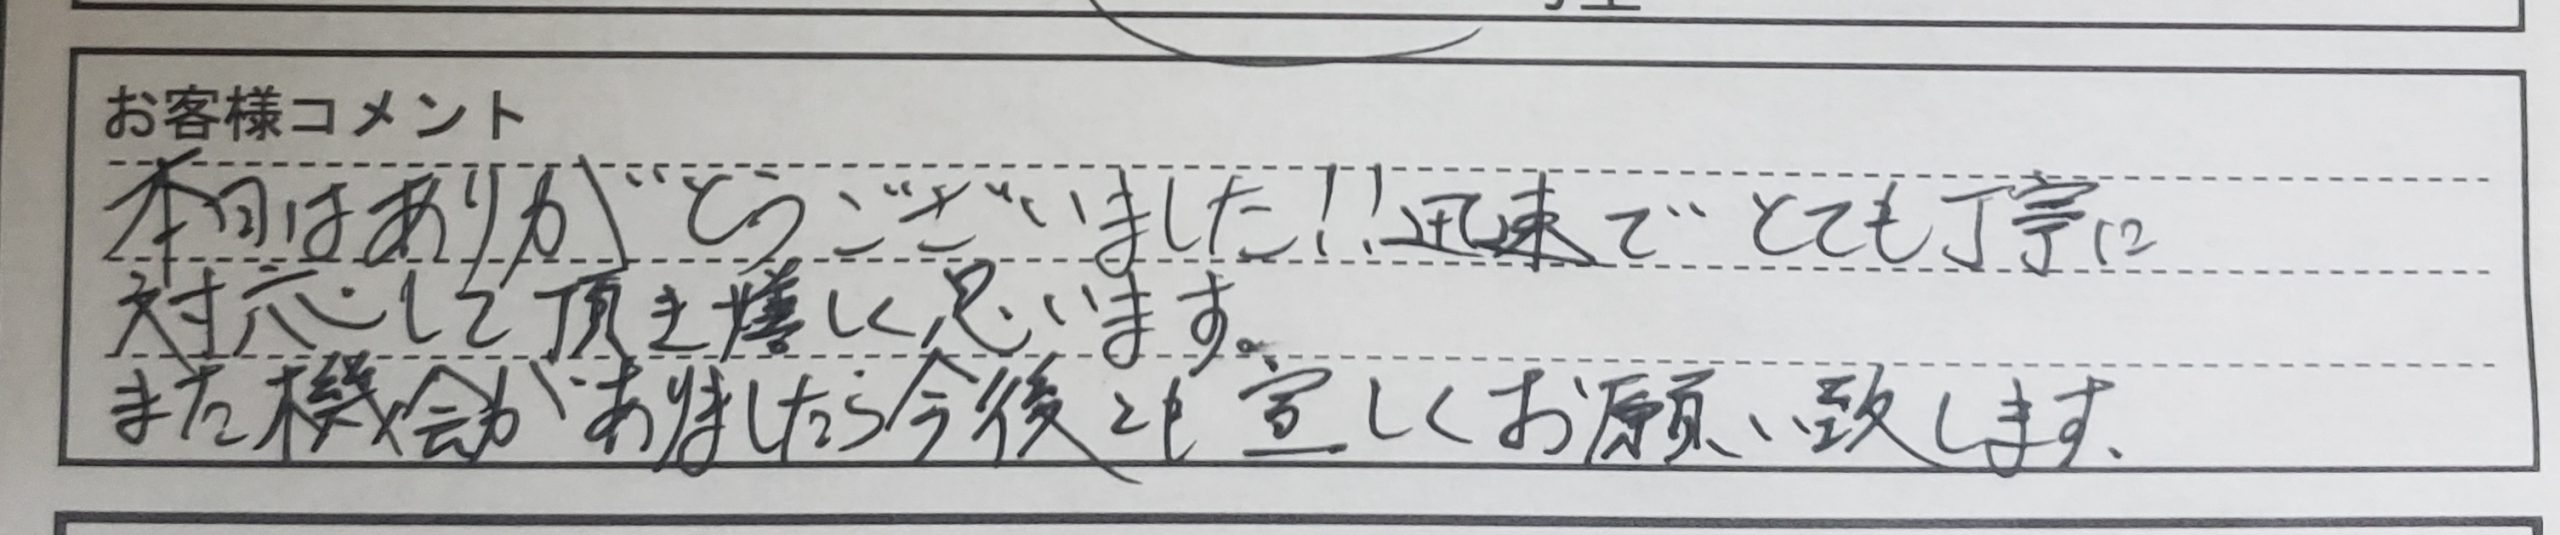 お客様コメント
本日はありがとうございました!!迅速でとても丁寧に
対応して頂き嬉しく思います。
また機会がありましたら今後とも宜しくお願い致します、